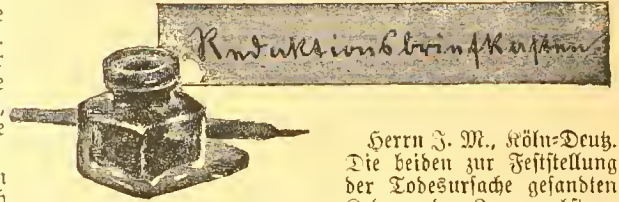 Redaktionsbriefkasten.
Herrn J. M., Köln-Deutz.
Die beiden zur Feststellung
der Todesursache gesandten